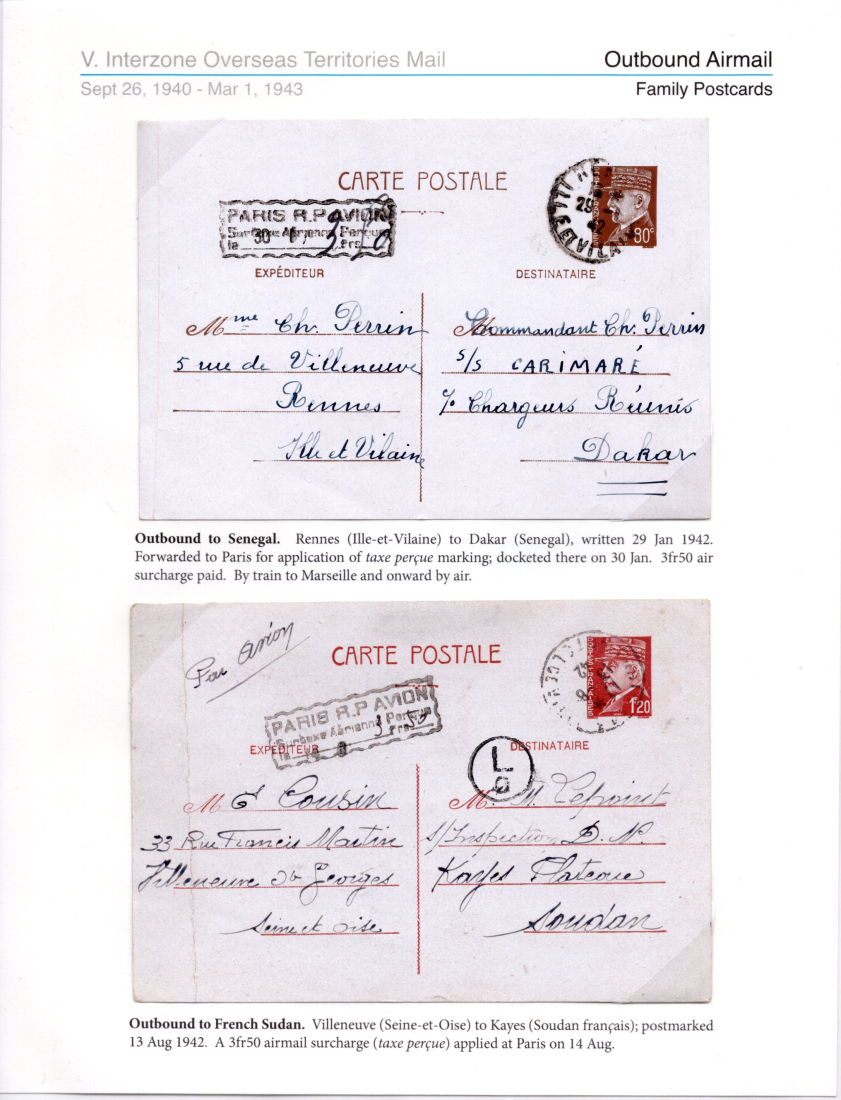 V. Interzone Overseas Territories Mail
Outbound Airmail
Sept 26, 1940 - Mar 1, 1943
Family Postcards
CARTE POSTALE
29
42
80c
PARIS R.P AVION
Surtaxe Aérienne Perçue
le 30 frs
EXPÉDITEUR
DESTINATAIRE
Mme Ch. Perrin
5 rue de Villeneuve
Rennes
Ille et Vilaine
Commandant Ch. Perrin
s/s CARIMARÉ
c/o Chargeurs Réunis
Dakar
Outbound to Senegal. Rennes (Ille-et-Vilaine) to Dakar (Senegal), written 29 Jan 1942.
Forwarded to Paris for application of taxe perçue marking; docketed there on 30 Jan. 3fr50 air
surcharge paid. By train to Marseille and onward by air.
Par avion
CARTE POSTALE
1f20
PARIS R.P AVION
Surtaxe Aérienne Perçue
le 8 3 50 frs
EXPÉDITEUR
DESTINATAIRE
L
M Cousin
33 Rue Francis Martin
Villeneuve St Georges
Seine et Oise
M. Lepoivret
s/Inspection D. N.
Kayes Plateau
Soudan
Outbound to French Sudan. Villeneuve (Seine-et-Oise) to Kayes (Soudan français); postmarked
13 Aug 1942. A 3fr50 airmail surcharge (taxe perçue) applied at Paris on 14 Aug.